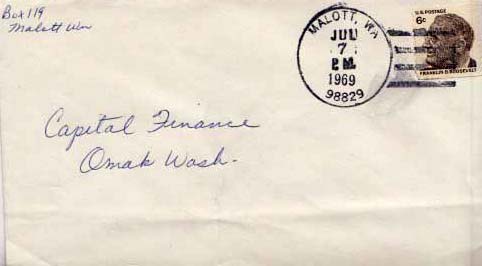 Box 119
Malott Wn
MALOTT, WA
JUL
7
P.M.
1969
98829
U.S. POSTAGE
6¢
FRANKLIN D. ROOSEVELT
Capital Finance
Omak Wash.